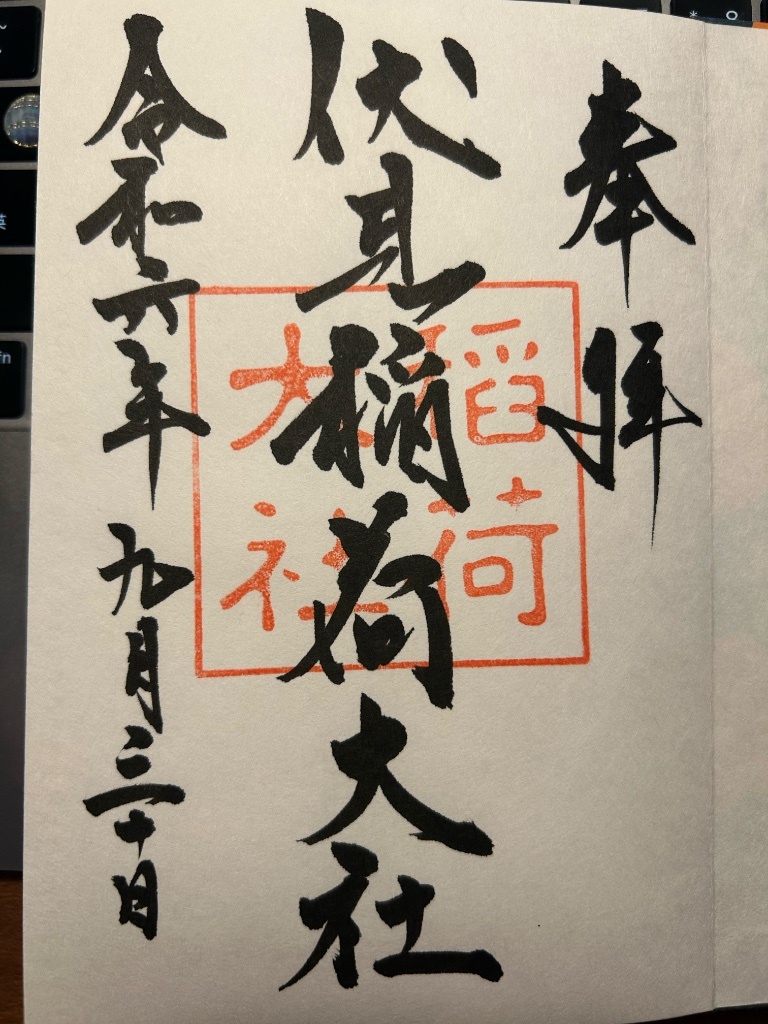 奉拝
伏見稲荷大社
令和六年九月三十日
稲荷
大社
英
fn